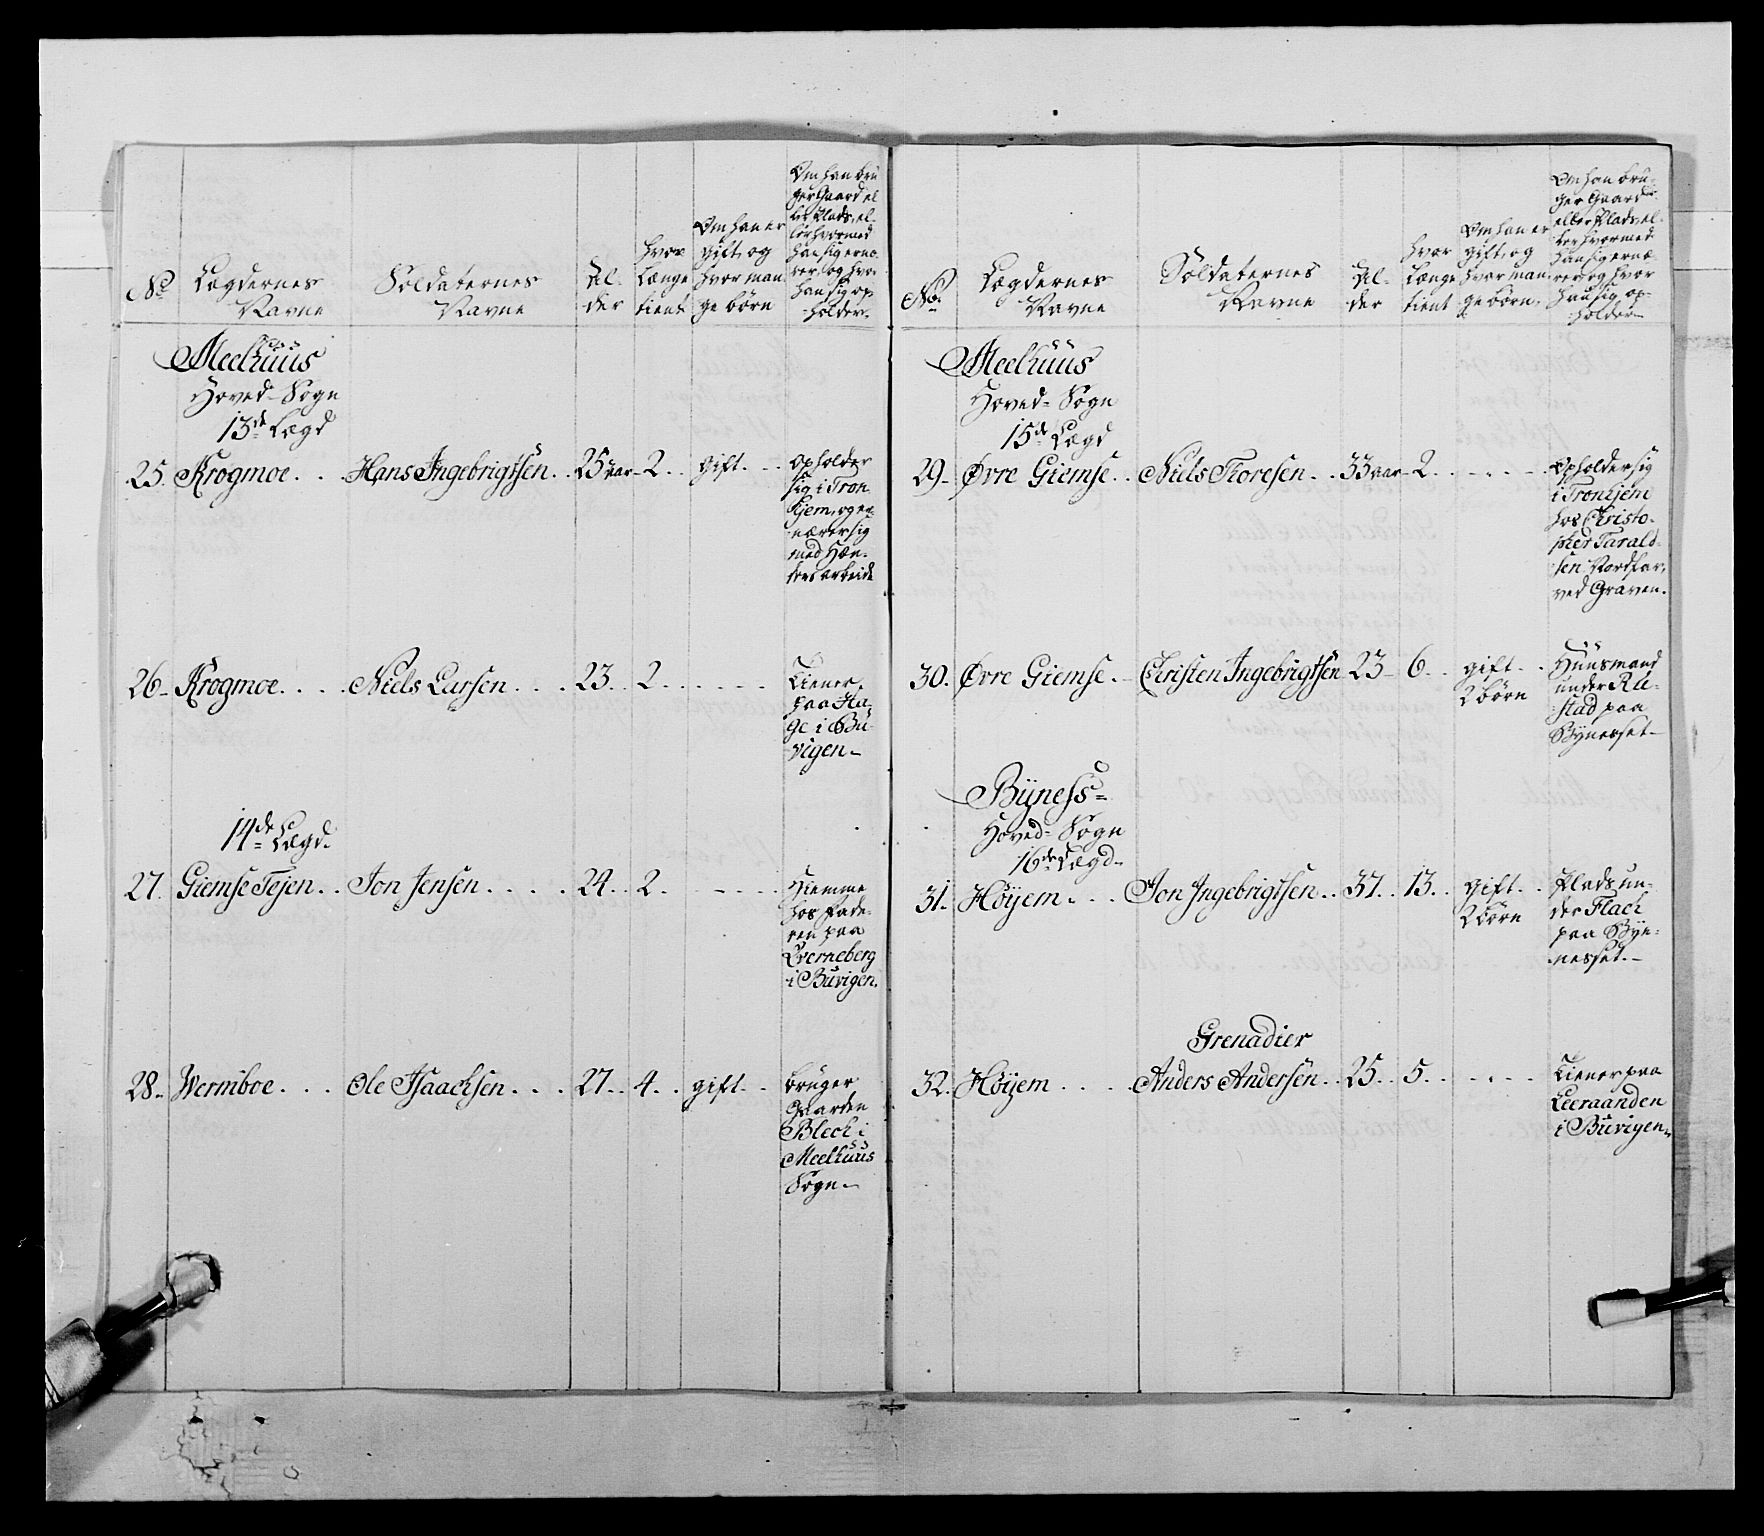 No
Lægdernes
Navne
Soldaternes
Navne
Al-
der
hvor
længe
tient
Om han er
gift, og
hvor man
ge börn
Om han bru
ger Gaard el
ler Plads, el-
ler hvormed
han sig ernæ
rer, og hvor
han sig op-
holder.
Meelhuus
Hoved-Sogn
13de Lægd
25. Krogmoe. . . Hans Ingebrigtsen. . 25 aar- 2. . gift. . . Opholder
sig i Tron
hjem, og er-
nærer sig
med Hæn-
ders arbeide
26. Krogmoe. . . . Niels Larsen. . . . 23. . 2. . . . . . Tiener
paa Ha-
ge i Bu-
vigen-
14de Lægd.
27. Giemse Tejen. . Jon Jensen. . . . . 24. . 2. . . . . Hiemme
hos Fade-
ren paa
Qverneberg
i Buvigen.
28. Wermboe. . . . Ole Isaachsen. . . . 27. . 4. . gift. . . bruger
Gaarden
Blech i
Meelhuus
Sogn-
No.
Lægdernes
Navne
Soldaternes
Navne
Al-
der
hvor
længe
tient
Om han er
gift, og
hvor man-
ge börn,
Om han bru-
ger Gaard
eller Plads, el-
ler hvormed
han sig ernæ-
rer, og hvor
han sig op-
holder
Meelhuus
Hoved-Sogn
15de Lægd
29. Øvre Giemse. . Niels Thoresen. . 33 aar- 2. . . . . Opholder sig
i Tronhjem
hos Christo-
pher Tarald-
sen Nordfar,
ved Graven.
30. Øvre Giemse. . Christen Ingebrigtsen 23- 6. . gift. . .
2 börn
Huusmand
under Ru-
stad paa
Bynesset-
Bÿness-
Hoved-Sogn
16de Lægd-
31. Höÿem. . . . Jon Ingebrigtsen. . 37. . 13. . gift. . .
2 börn
Plads un-
der Flach
paa Bÿe-
nesset.-
Grenadier
32. Höÿem . . . . Anders Andersen. . 25. . 5. . . . . . Tiener paa
Leeraanden
i Buvigen.